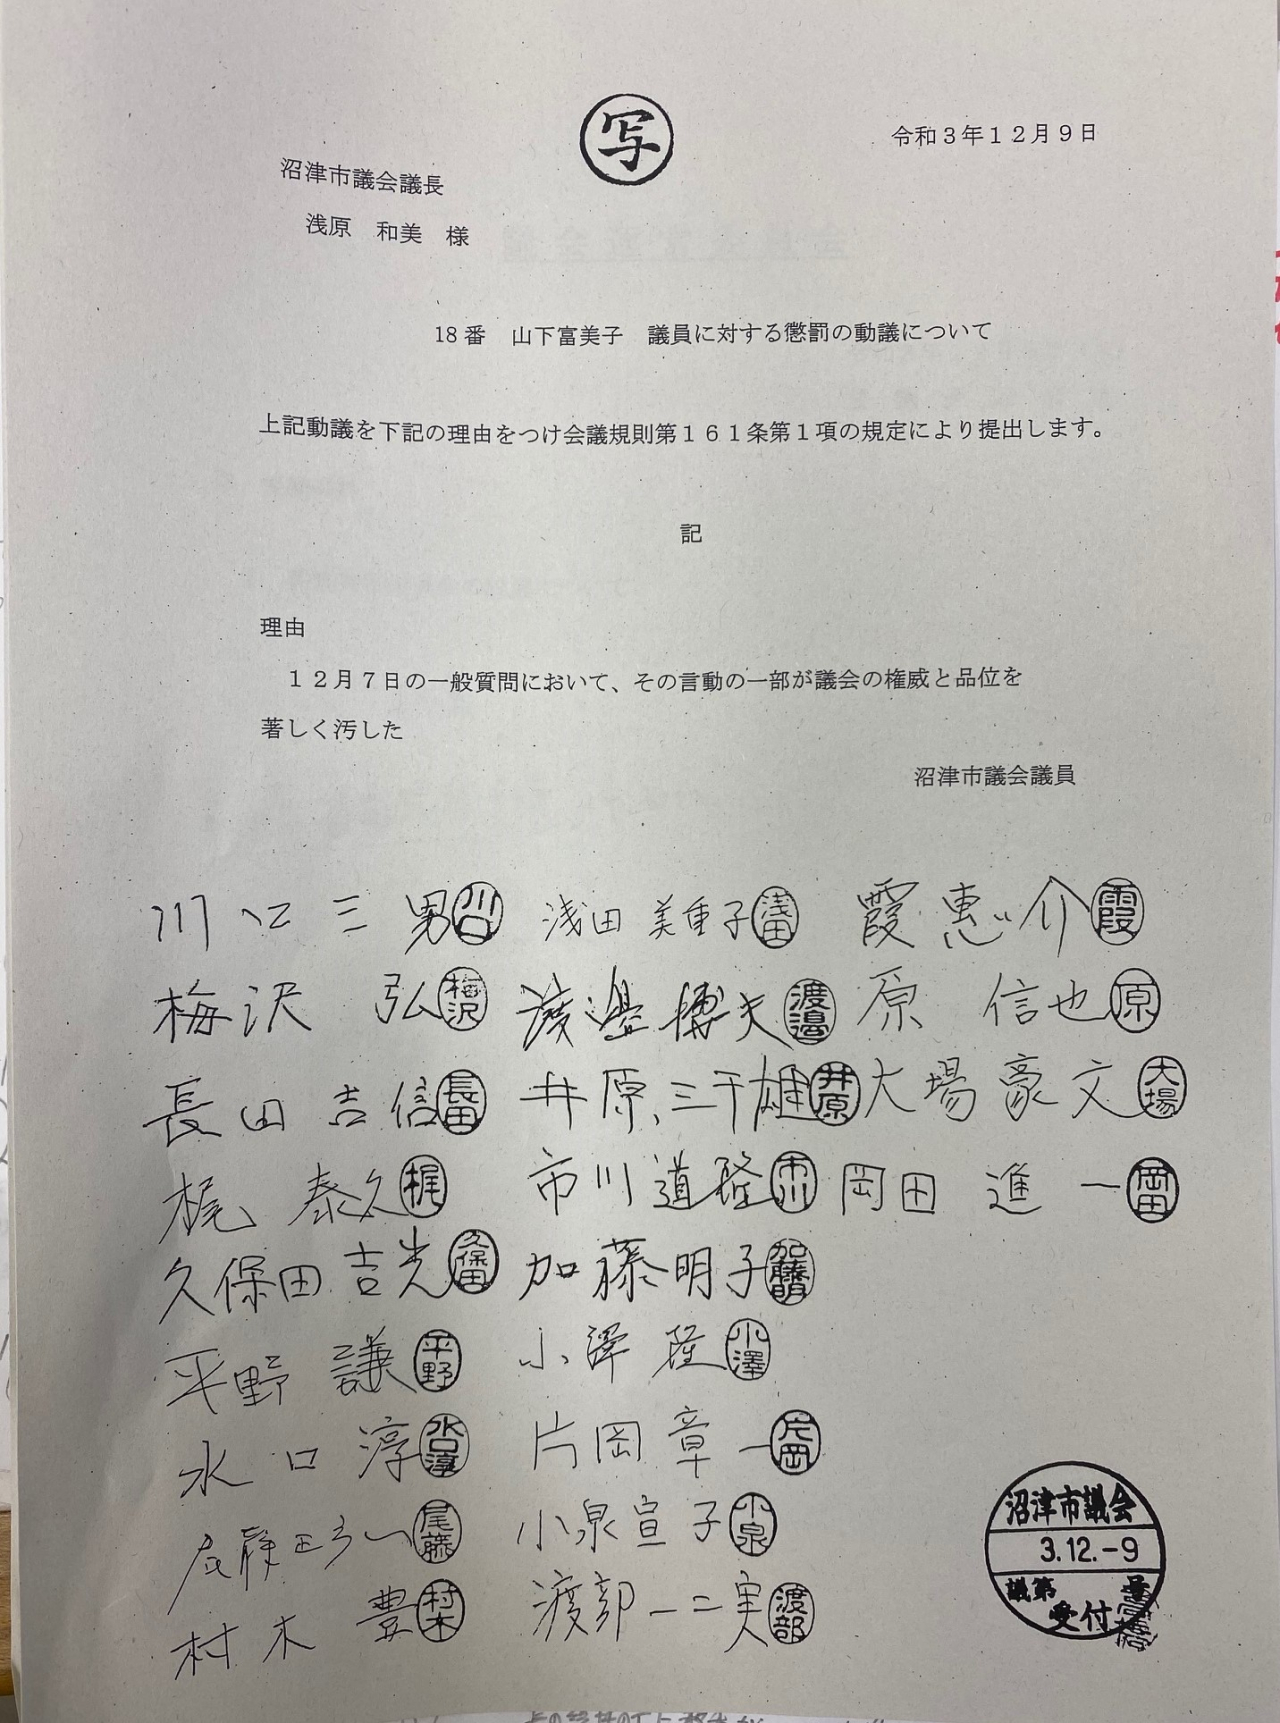 写
令和3年12月9日
沼津市議会議長
浅原 和美 様
18番 山下富美子 議員に対する懲罰の動議について
上記動議を下記の理由をつけ会議規則第161条第1項の規定により提出します。
記
理由
12月7日の一般質問において、その言動の一部が議会の権威と品位を
著しく汚した
沼津市議会議員
川口三男 川口 浅田美重子 浅田 霞恵介 霞
梅沢 弘 梅沢 渡邉博夫 渡邉 原 信也 原
長田吉信 長田 井原三千雄 井原 大場豪文 大場
梶 泰久 梶 市川道隆 市川 岡田進一 岡田
久保田吉光 久保田 加藤明子 加藤明
平野 謙 平野 小澤 隆 小澤
水口 淳 水口淳 片岡章一 片岡
尾藤正弘 尾藤 小泉宣子 小泉
村木 豊 村木 渡部一二実 渡部
沼津市議会
3.12.-9
議第 号
受付